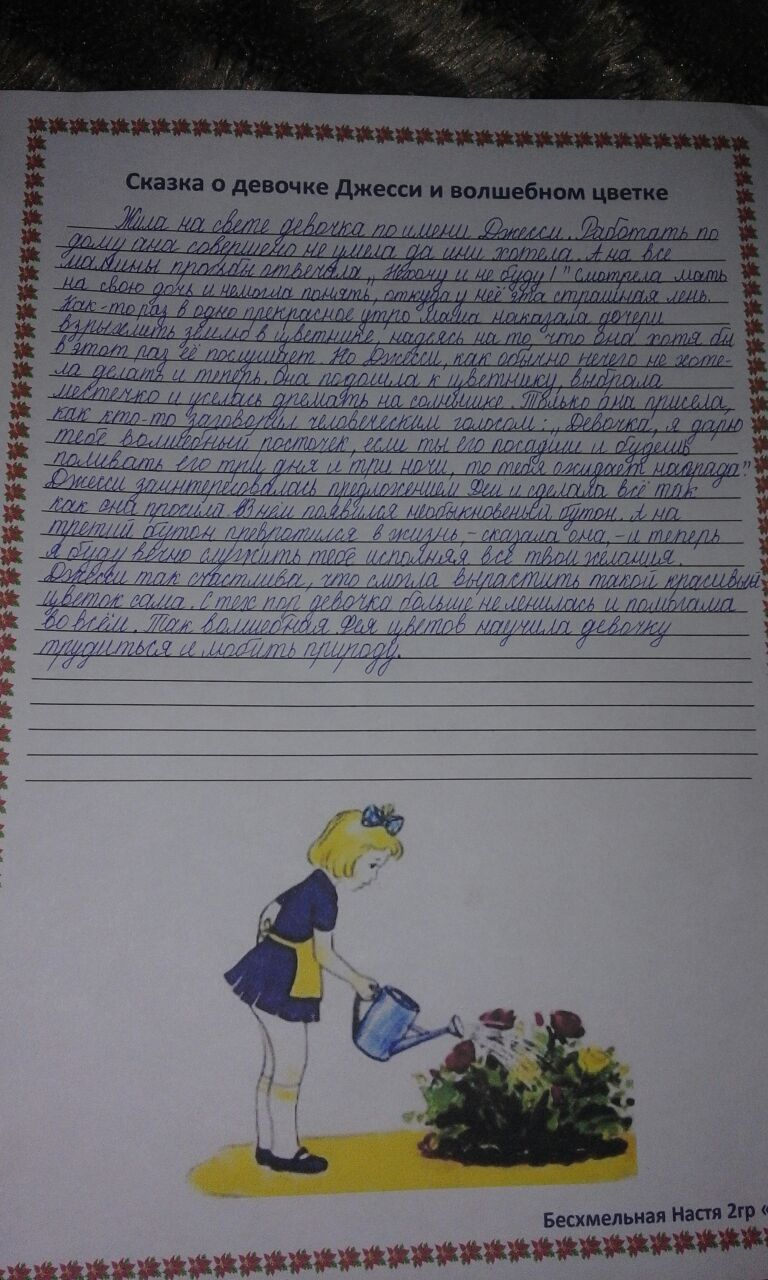 Сказка о девочке Джесси и волшебном цветке
Жила на свете девочка по имени Джесси. Работать по
дому она совершено не умела да и ни хотела. А на все
мамины просьбы отвечала „ Не хочу и не буду! " смотрела мать
на свою дочь и немогла понять, откуда у неё эта страшная лень.
Как-то раз в одно прекрасное утро мама наказала дочери
взрыхлить землю в цветнике, надеясь на то, что она хотя бы
в этот раз её послушает. Но Джесси, как обычно нечего не хоте-
ла делать и теперь. Она подошла к цветнику, выбрала
местечко и уселась дремать на солнышке. Только она присела,
как кто-то заговорил человеческим голосом: „ Девочка, я дарю
тебе волшебный росточек, если ты его посадиш и будешь
поливать его три дня и три ночи, то тебя ожидает награда."
Джесси заинтересовалась предложением Феи и сделала всё так
как она просила. В нём появился необыкновеный бутон. А на
третий бутон превротился в жизнь, - сказала она, - и теперь
я буду вечно служить тебе исполняя все твои желания.
Джесси так счастлива, что смогла вырастить такой красивый
цветок сама. С тех пор девочка больше не ленилась и помогала
во всём. Так волшебная Фея цветов научила девочку
трудиться и любить природу.
Бесхмельная Настя 2гр «